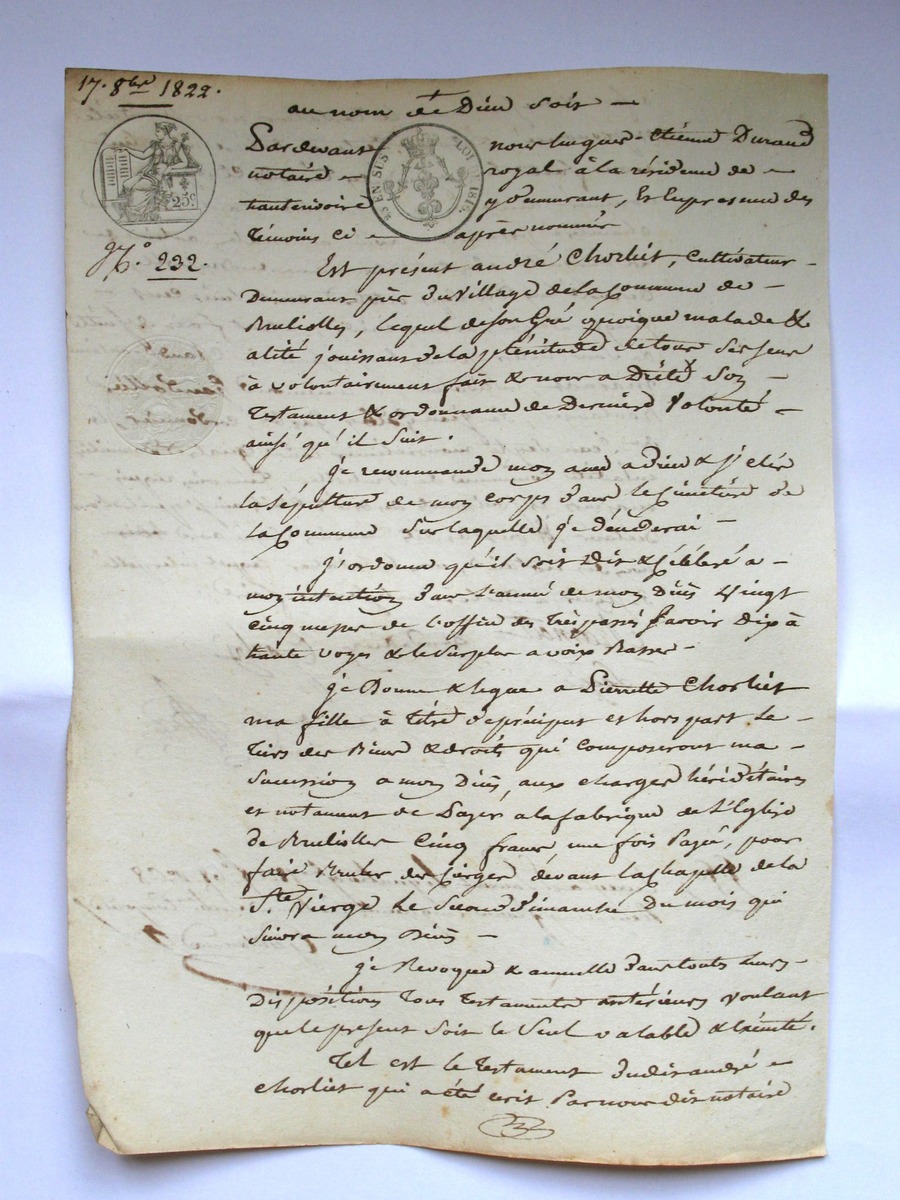 17. 8bre 1822.
au nom de Dieu soit
Pardevant nous Luc Etienne Durand
notaire royal à la résidence de
hauterivoire y demeurant, Et En presence des
témoins ci après nommés
25c
EN SUS LOI 1816.
No. 232.
Est présent andré Chorliet, Cultivateur
Demeurant du Village de la Commune de
Brullolles, lequel de Son Gré quoique malade &
alité jouissant de la plénitude de tous Ses Sens
à volontairement fait & nous a Dicté Son
Testament & ordonnance de Derniere Volonté
ainsi qu'il Suit.
je recommande mon ame a Dieu & j'
la Sépulture de mon Corps dans le Cimetière de
la Commune Sur laquelle je décéderai
j'ordonne qu'il soit Dit & Célébré a
mon intention dans l'année de mon Décès Vingt
Cinq messes de l'office des Trépassés Savoir Dix à
haute voyes & le Surplus a voix Basses
je Donne & legue a Pierrette Chorliet
ma fille à titre de préciput et hors part le
tiers des Biens & droits qui composeront ma
Sucession a mon Décès, aux charges héréditaires
et notament de Payer a la fabrique de L'Eglise
de Brullolles Cinq francs une fois Payés, pour
faire Bruler des Cierges devant la Chapelle de la
Ste Vierge le Second Dimanche Du mois qui
Suivra mon Décès
je Révoque & annulle dans toutes leurs
Dispositions Tous Testaments antérieurs voulant
que le present Soit le Seul valable & Exécuté.
Tel est le Testament Dudit andré
Chorliet qui a été écrit Par nous dit notaire